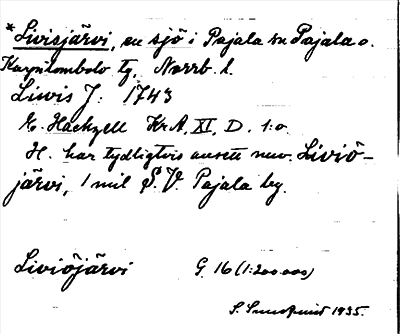 *Livisjärvi, en sjö i Pajala sn Pajala o.
Korpilombolo tg, Norrb. l.
Liwis J: 1743
E. Hackzell KrA, XI, D. 1:o
H. har tydligtvis ansett nuv. Liviö-
järvi, 1 mil S.V. Pajala by.
Liviöjärvi G. 16 (1:200 000)
S. 1935.